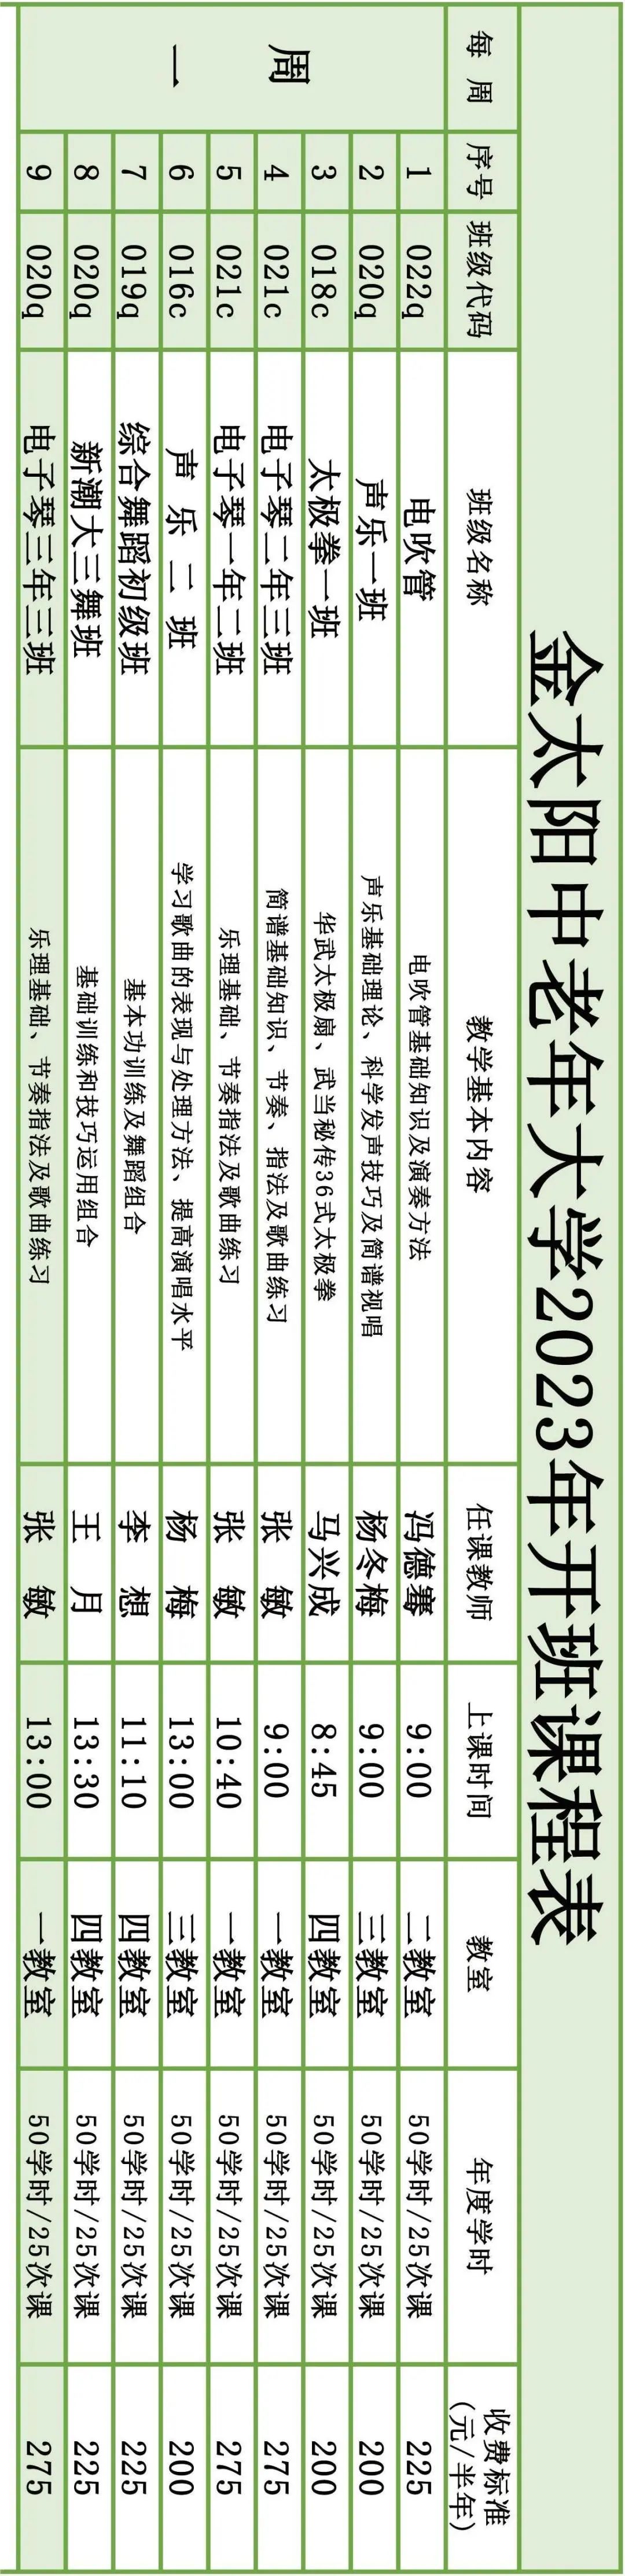 金太阳中老年大学2023年开班课程表
每周 序号 班级代码 班级名称 教学基本内容 任课教师 上课时间 教室 年度学时 收费标准(元/半年)
周一
1 022q 电吹管 电吹管基础知识及演奏方法 冯德骞 9:00 二教室 50学时/25次课 225
2 020q 声乐一班 声乐基础理论、科学发声技巧及简谱视唱 杨冬梅 9:00 三教室 50学时/25次课 200
3 018c 太极拳一班 华武太极扇、武当秘传36式太极拳 马兴成 8:45 四教室 50学时/25次课 200
4 021c 电子琴二年三班 简谱基础知识、节奏、指法及歌曲练习 张敏 9:00 一教室 50学时/25次课 275
5 021c 电子琴一年二班 乐理基础、节奏指法及歌曲练习 张敏 10:40 一教室 50学时/25次课 275
6 016c 声乐二班 学习歌曲的表现与处理方法、提高演唱水平 杨梅 13:00 三教室 50学时/25次课 200
7 019q 综合舞蹈初级班 基本功训练及舞蹈组合 李想 11:10 四教室 50学时/25次课 225
8 020q 新潮大三舞班 基础训练和技巧运用组合 王月 13:30 四教室 50学时/25次课 225
9 020q 电子琴三年三班 乐理基础、节奏指法及歌曲练习 张敏 13:00 一教室 50学时/25次课 275